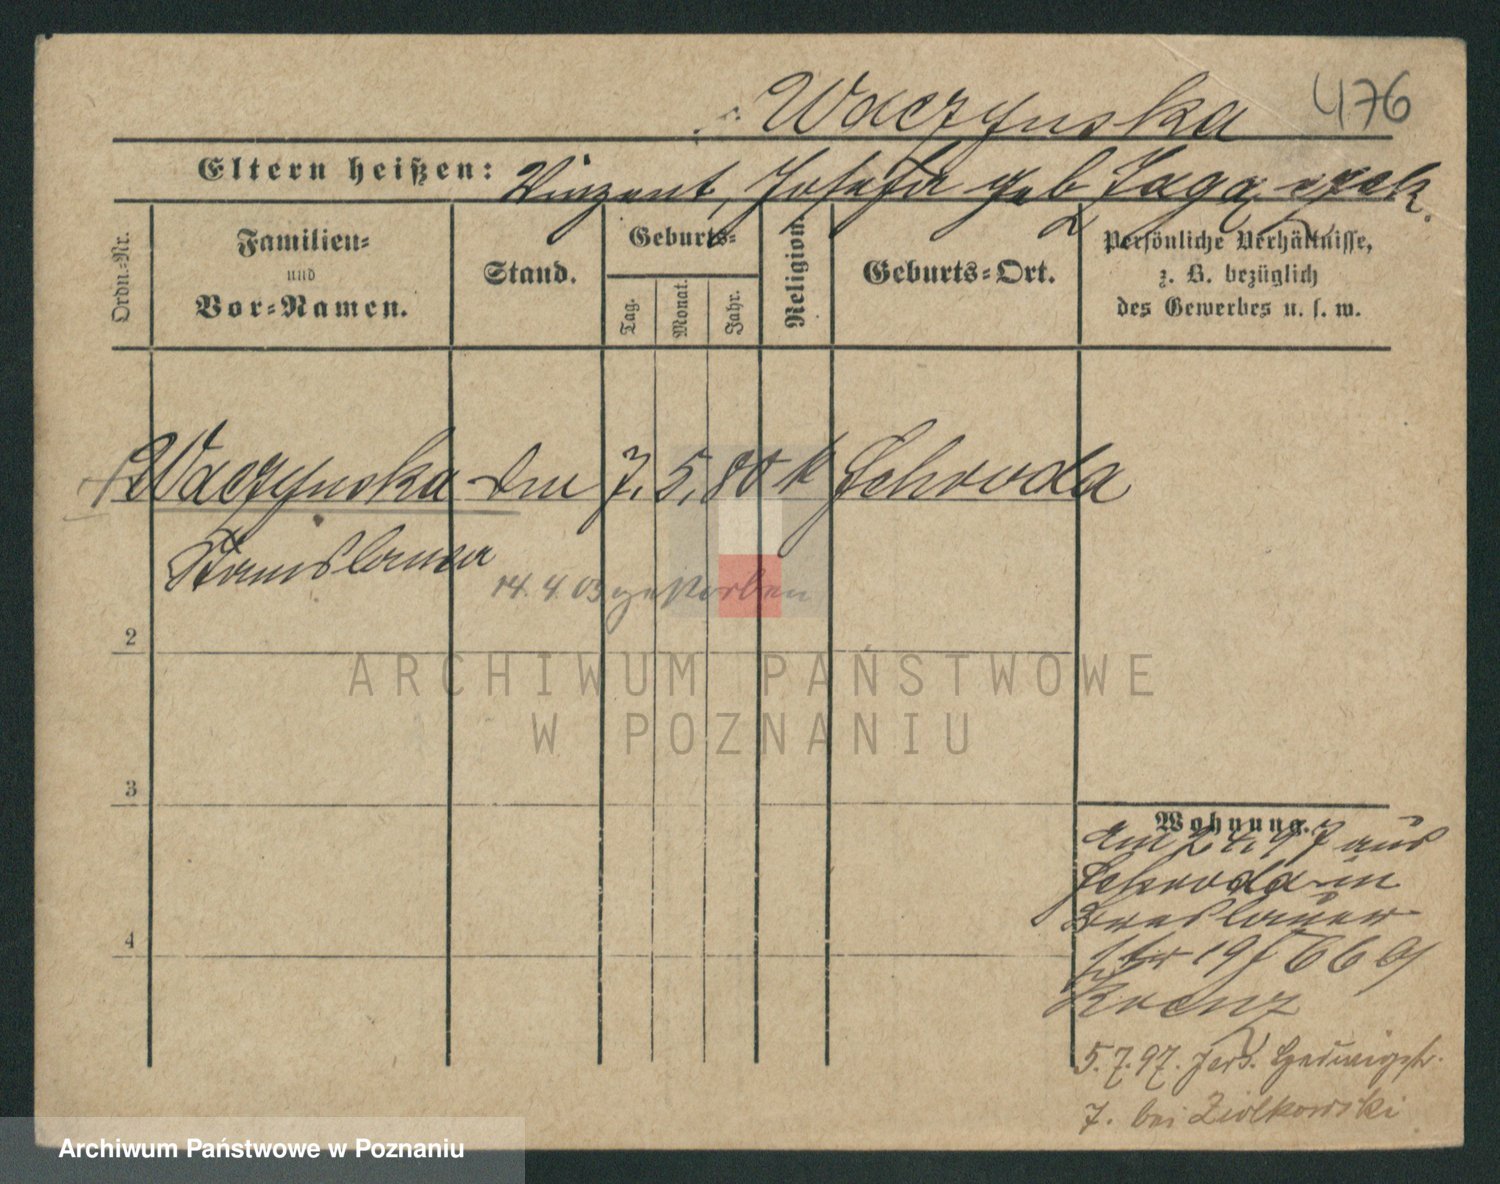 Waczynska 476
Eltern heißen: Vinzent, Josefa geb
Ordn.-Nr.
Familien-
und
Vor-Namen.
Stand.
Geburts-
Tag.
Monat.
Jahr.
Religion.
Geburts-Ort.
Persönliche Verhältnisse,
z. B. bezüglich
des Gewerbes u. s. w.
Waczynska 7. 5. 80 k Schroda
Stanislawa
14. 4. 03 gestorben
2
ARCHIWUM PAŃSTWOWE
W POZNANIU
3
Wohnung.
am 97 aus
Schroda in
Breslauer
str 19 bei
Krenz
5. 7. 97. Jers. Hedwigstr.
7. bei Ziolkowski
4
Archiwum Państwowe w Poznaniu